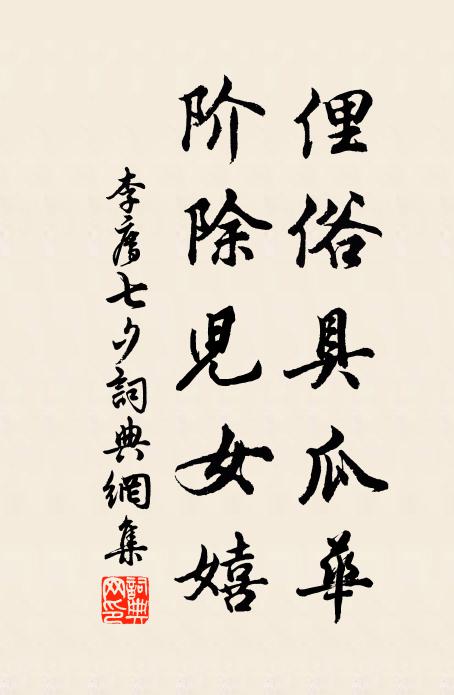 俚俗具瓜華
阶除兒女嬉
李廌七夕詞典網集
詞典
网印